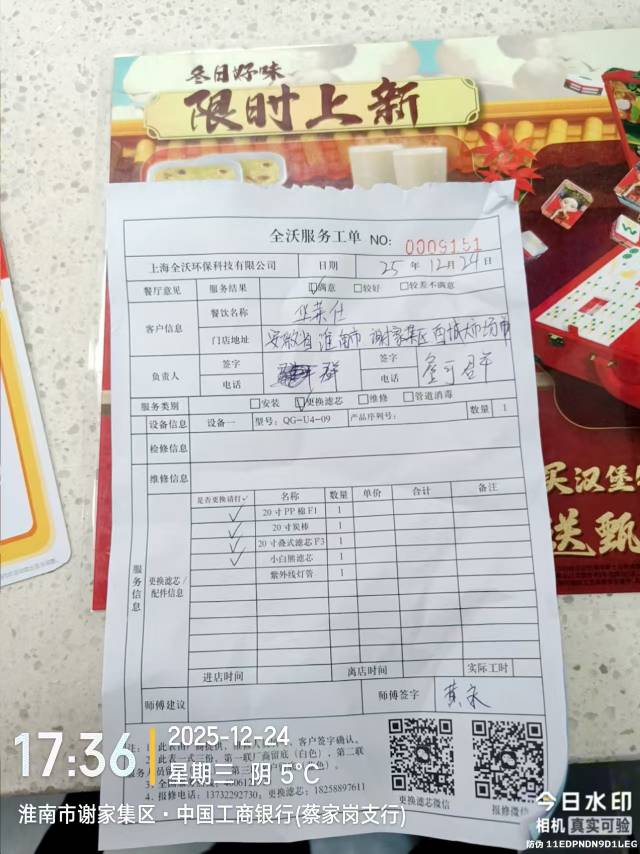 冬日好味
限时上新
全沃服务工单 NO: 0009151
上海全沃环保科技有限公司 日期 25 年 12 月 24 日
餐厅意见 服务结果 ☑满意 □较好 □较差不满意
客户信息 餐饮名称 华莱仕
门店地址 安徽省淮南市谢家集区西城大市场
负责人 签字 群 签字
电话 电话
服务类别 □安装 ☑更换滤芯 □维修 □管道消毒
设备信息 设备一 型号: QG-U4-09 产品序列号: 数量 1
检修信息
维修信息
服务信息
更换滤芯/配件信息
是否更换请打✓ 名称 数量 单价 合计 备注
✓ 20寸PP棉F1 1
✓ 20寸炭棒 1
✓ 20寸叠式滤芯F3 1
✓ 小白熊滤芯 1
紫外线灯管 1
进店时间 离店时间 实际工时
师傅建议 师傅签字
客户签字确认。
此表一式三份，第一联厂商留底(白色)，第二联
4、报修电话: 13732292730; 18258897611
更换滤芯微信
报修微信
买汉堡
送甄
17:36
2025-12-24
星期三 阴 5℃
淮南市谢家集区·中国工商银行(蔡家岗支行)
今日水印
相机 真实可验
防伪 11EDPNDN9D1LEG